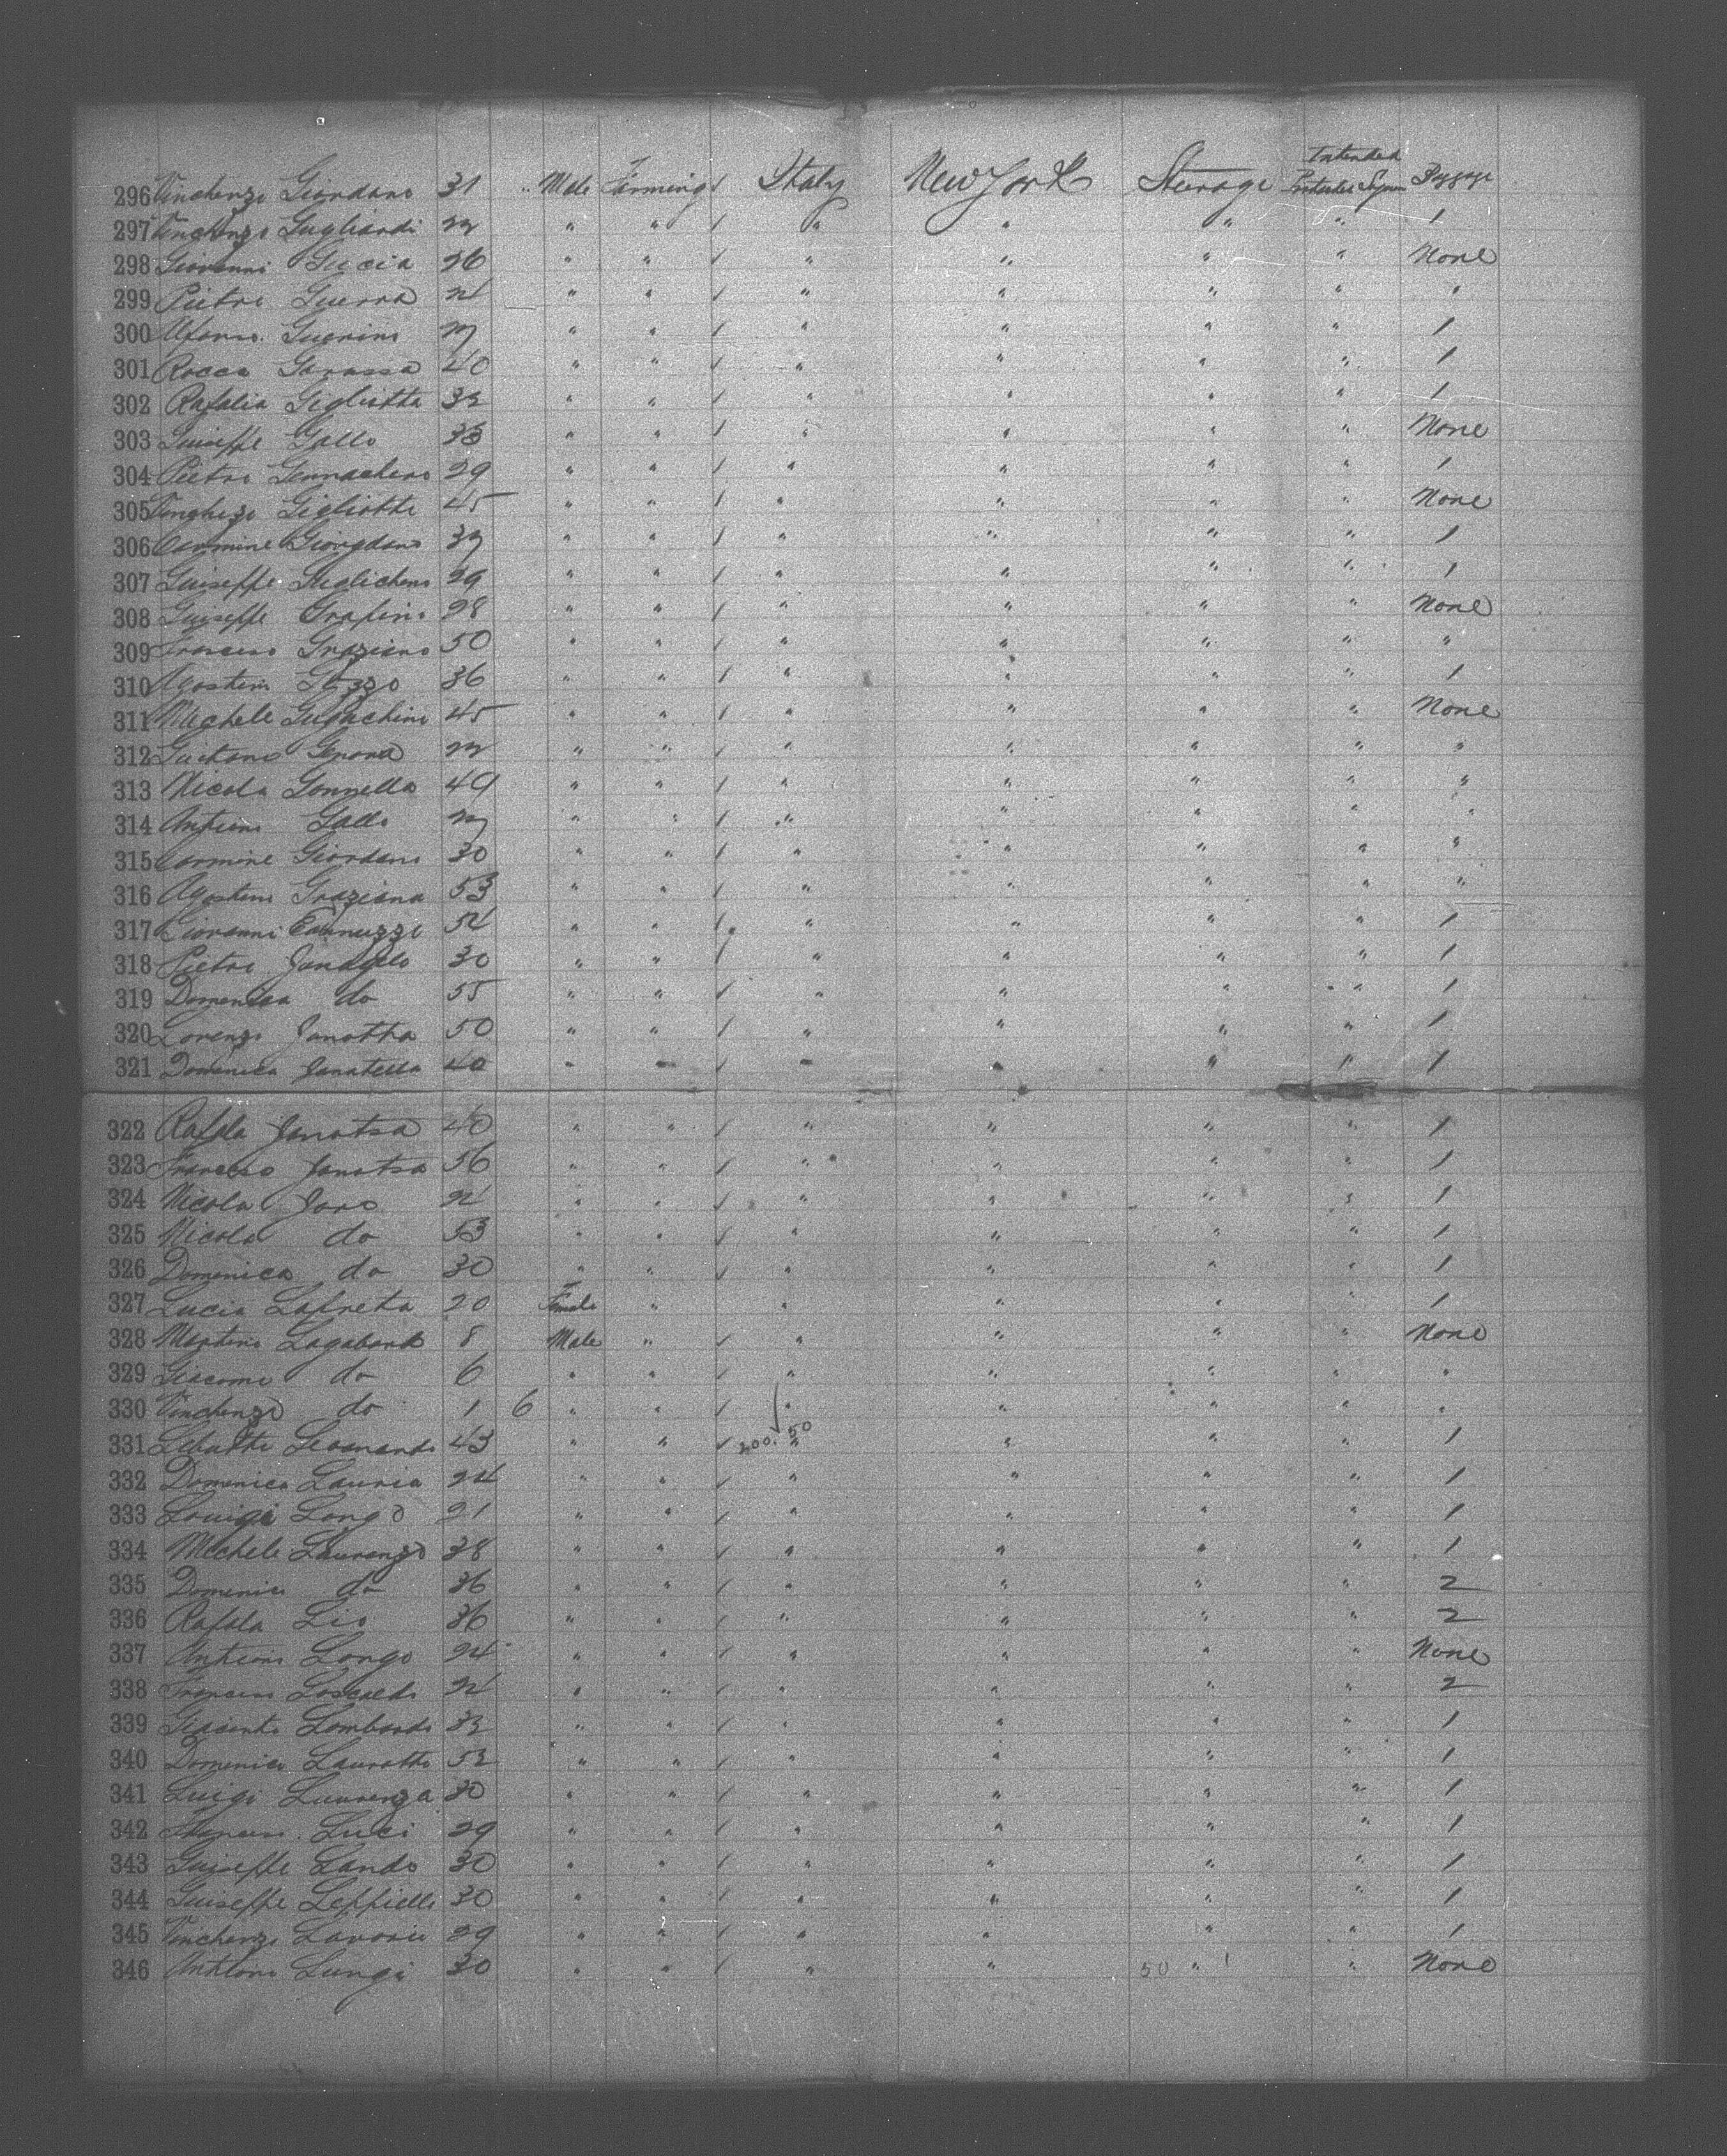 296 Vinchenzo Giordano 31 " Male Farming / Italy New York Steerage Intended Protracted Sojourn Baggage
297 Vinchenzo Gugliardi 22 " " / " " " " 1
298 Giovanni Guccia 26 " " / " " " " None
299 Pietro Guerra 24 " " / " " " " "
300 Alfonso Guerino 27 " " / " " " " 1
301 Rocco Garassa 40 " " / " " " " 1
302 Rafalia Gigliotta 32 " " / " " " " 1
303 Guiseppe Gallo 33 " " / " " " " None
304 Pietro Gennachero 29 " " / " " " " 1
305 Vinghezo Gigliotte 45 " " / " " " " None
306 Carmine Giorgdano 37 " " / " " " " 1
307 Guiseppe Guglicheno 29 " " / " " " " 1
308 Guiseppe Grafino 28 " " / " " " " None
309 Francesco Graziano 50 " " / " " " " "
310 Agostino Gizzo 36 " " / " " " " 1
311 Michele Gugachino 45 " " / " " " " None
312 Guitano Genova 22 " " / " " " " "
313 Nicola Gonnella 49 " " / " " " " "
314 Antieno Gallo 27 " " / " " " " "
315 Carmine Giordano 30 " " / " " " " "
316 Agostino Graziana 53 " " / " " " " "
317 Giovanni Iannuzzi 54 " " / " " " " 1
318 Pietro Janagelo 30 " " / " " " " 1
319 Domenica do 55 " " / " " " " 1
320 Lorenzo Janotha 50 " " / " " " " 1
321 Domenica Janatella 40 " " / " " " " 1
322 Rafala Janotsa 40 " " / " " " " 1
323 Francesco Janotsa 56 " " / " " " " 1
324 Nicola Joro 24 " " / " " " " 1
325 Nicola do 53 " " / " " " " 1
326 Domenica do 30 " " / " " " " 1
327 Lucia Lafreta 20 Female " " " " 1
328 Martino Lagabardo 8 Male " / " " " " None
329 Giacomo do 6 " " / " " " " "
330 Vinchenzo do 1 6 " " / " " " " "
331 Leonardo 43 " " / 200. 50 " " " " 1
332 Domenico Lauria 24 " " / " " " " 1
333 Louigi Longo 21 " " / " " " " 1
334 Michele Laurenzo 38 " " / " " " " 1
335 Domenico do 36 " " / " " " " 2
336 Rafala Lio 36 " " / " " " " 2
337 Antieno Longo 24 " " / " " " " None
338 Francesco Loscaldo 24 " " / " " " " 2
339 Giacinto Lombardo 32 " " / " " " " 1
340 Domenico Lauratto 52 " " / " " " " 1
341 Luigi Laurenza 30 " " / " " " " 1
342 Luci 29 " " / " " " " 1
343 Guiseppe Lando 30 " " / " " " " 1
344 Guiseppe Leppiello 30 " " / " " " " 1
345 Vinchenzo Lavorio 29 " " / " " " " 1
346 Antieno Lungi 30 " " / " " 50 " " None